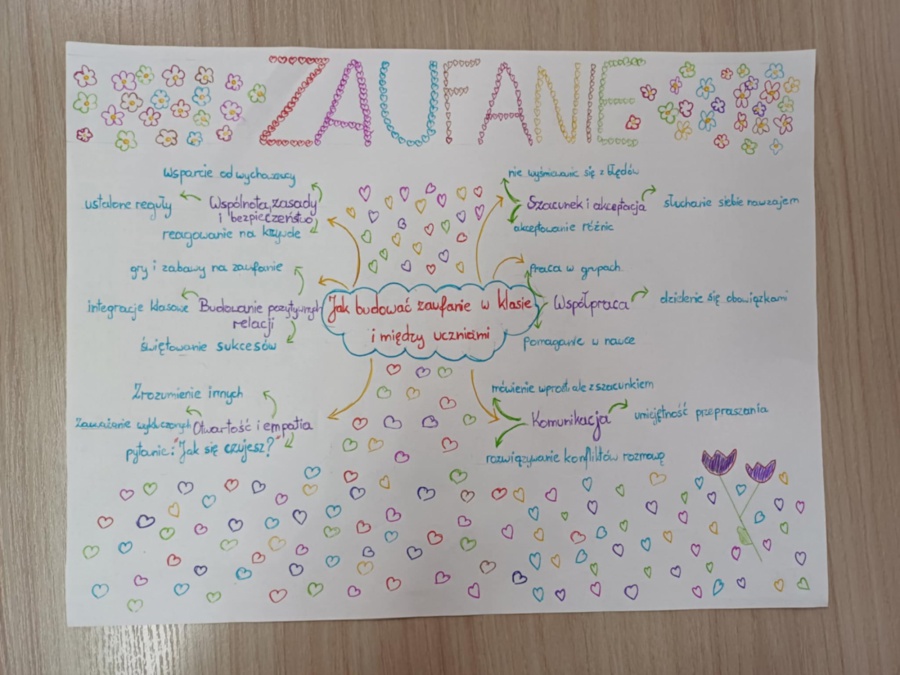 ZAUFANIE
Wsparcie od wychowawcy
ustalone reguły
Wspólnota, zasady
i bezpieczeństwo
reagowanie na krzywdę
gry i zabawy na zaufanie
integracje klasowe
Budowanie pozytywnych
relacji
świętowanie sukcesów
Zrozumienie innych
Zauważanie wykluczonych
Otwartość i empatia
pytanie: "Jak się czujesz?"
Jak budować zaufanie w klasie
i między uczniami
nie wyśmiewanie się z błędów
Szacunek i akceptacja
słuchanie siebie nawzajem
akceptowanie różnic
Praca w grupach
Współpraca
dzielenie się obowiązkami
pomaganie w nauce
mówienie wprost, ale z szacunkiem
Komunikacja
umiejętność przepraszania
rozwiązywanie konfliktów rozmową